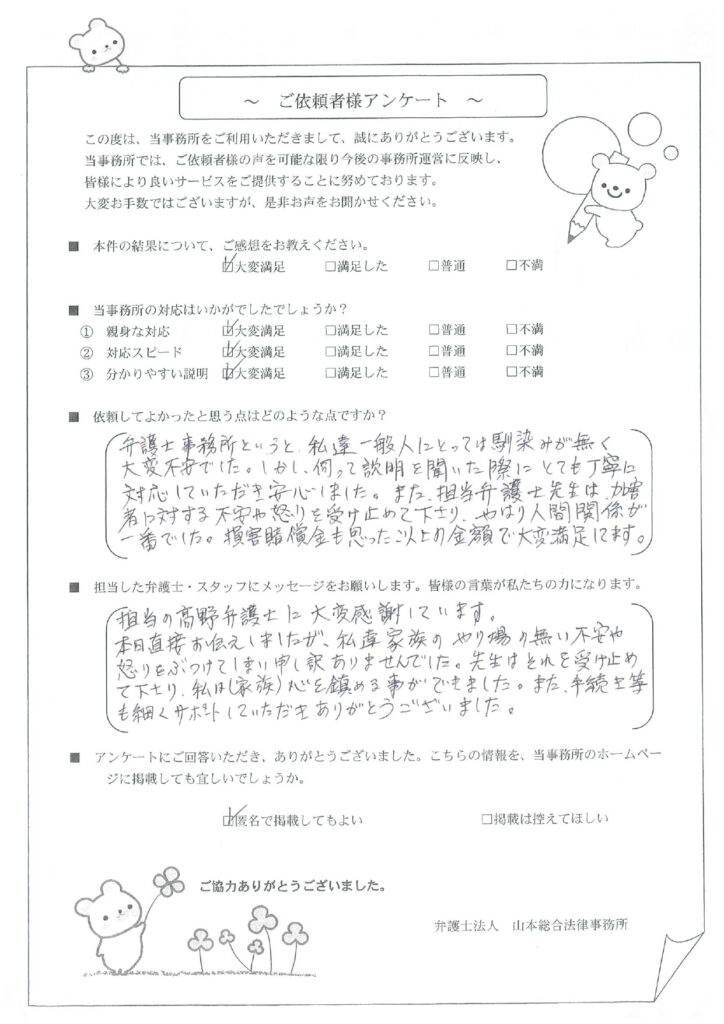 ～ ご依頼者様アンケート ～
この度は、当事務所をご利用いただきまして、誠にありがとうございます。
当事務所では、ご依頼者様の声を可能な限り今後の事務所運営に反映し、
皆様により良いサービスをご提供することに努めております。
大変お手数ではございますが、是非お声をお聞かせください。
■ 本件の結果について、ご感想をお教えください。
☑大変満足 □満足した □普通 □不満
■ 当事務所の対応はいかがでしたでしょうか？
① 親身な対応 ☑大変満足 □満足した □普通 □不満
② 対応スピード ☑大変満足 □満足した □普通 □不満
③ 分かりやすい説明 ☑大変満足 □満足した □普通 □不満
■ 依頼してよかったと思う点はどのような点ですか？
弁護士事務所というと、私達一般人にとっては馴染みが無く
大変不安でした。しかし、伺って説明を聞いた際にとても丁寧に
対応していただき安心しました。また、担当弁護士先生は、加害
者に対する不安や怒りを受け止めて下さり、やはり人間関係が
一番でした。損害賠償金も思った以上の金額で大変満足してます。
■ 担当した弁護士・スタッフにメッセージをお願いします。皆様の言葉が私たちの力になります。
担当の髙野弁護士に大変感謝しています。
本日直接お伝えしましたが、私達家族のやり場の無い不安や
怒りをぶつけてしまい申し訳ありませんでした。先生はそれを受け止め
て下さり、私は(家族)心を鎮める事ができました。また、手続き等
も細くサポートしていただきありがとうございました。
■ アンケートにご回答いただき、ありがとうございました。こちらの情報を、当事務所のホームペー
ジに掲載しても宜しいでしょうか。
☑匿名で掲載してもよい □掲載は控えてほしい
ご協力ありがとうございました。
弁護士法人 山本総合法律事務所